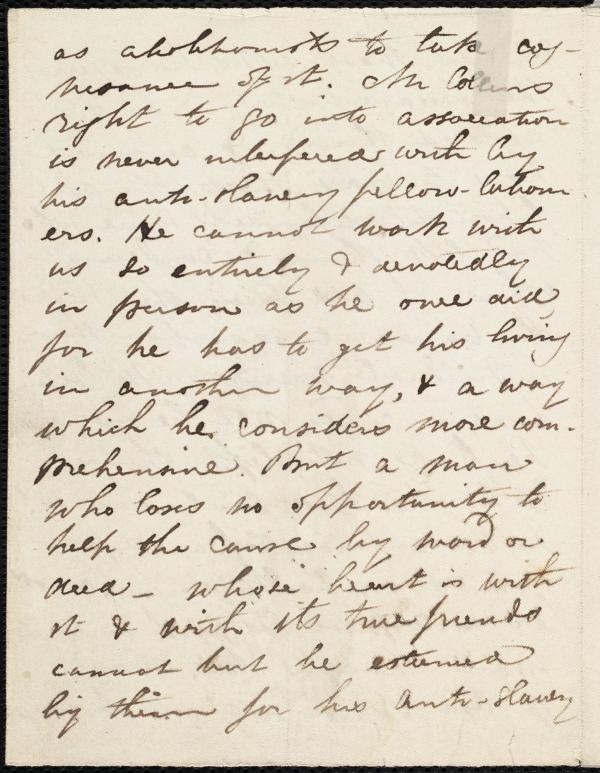 as abolitionists to take cog-
nizance of it. Mr Collins
right to go into association
is never interfered with by
his anti-slavery fellow-labour
ers. He cannot work with
us so entirely & devotedly
in person as he once did,
for he has to get his living
in another way, & a way
which he considers more com-
prehensive. But a man
who loses no opportunity to
help the cause by word or
deed - whose heart is with
it & with its true friends
cannot but be esteemed
by them for his anti-slavery